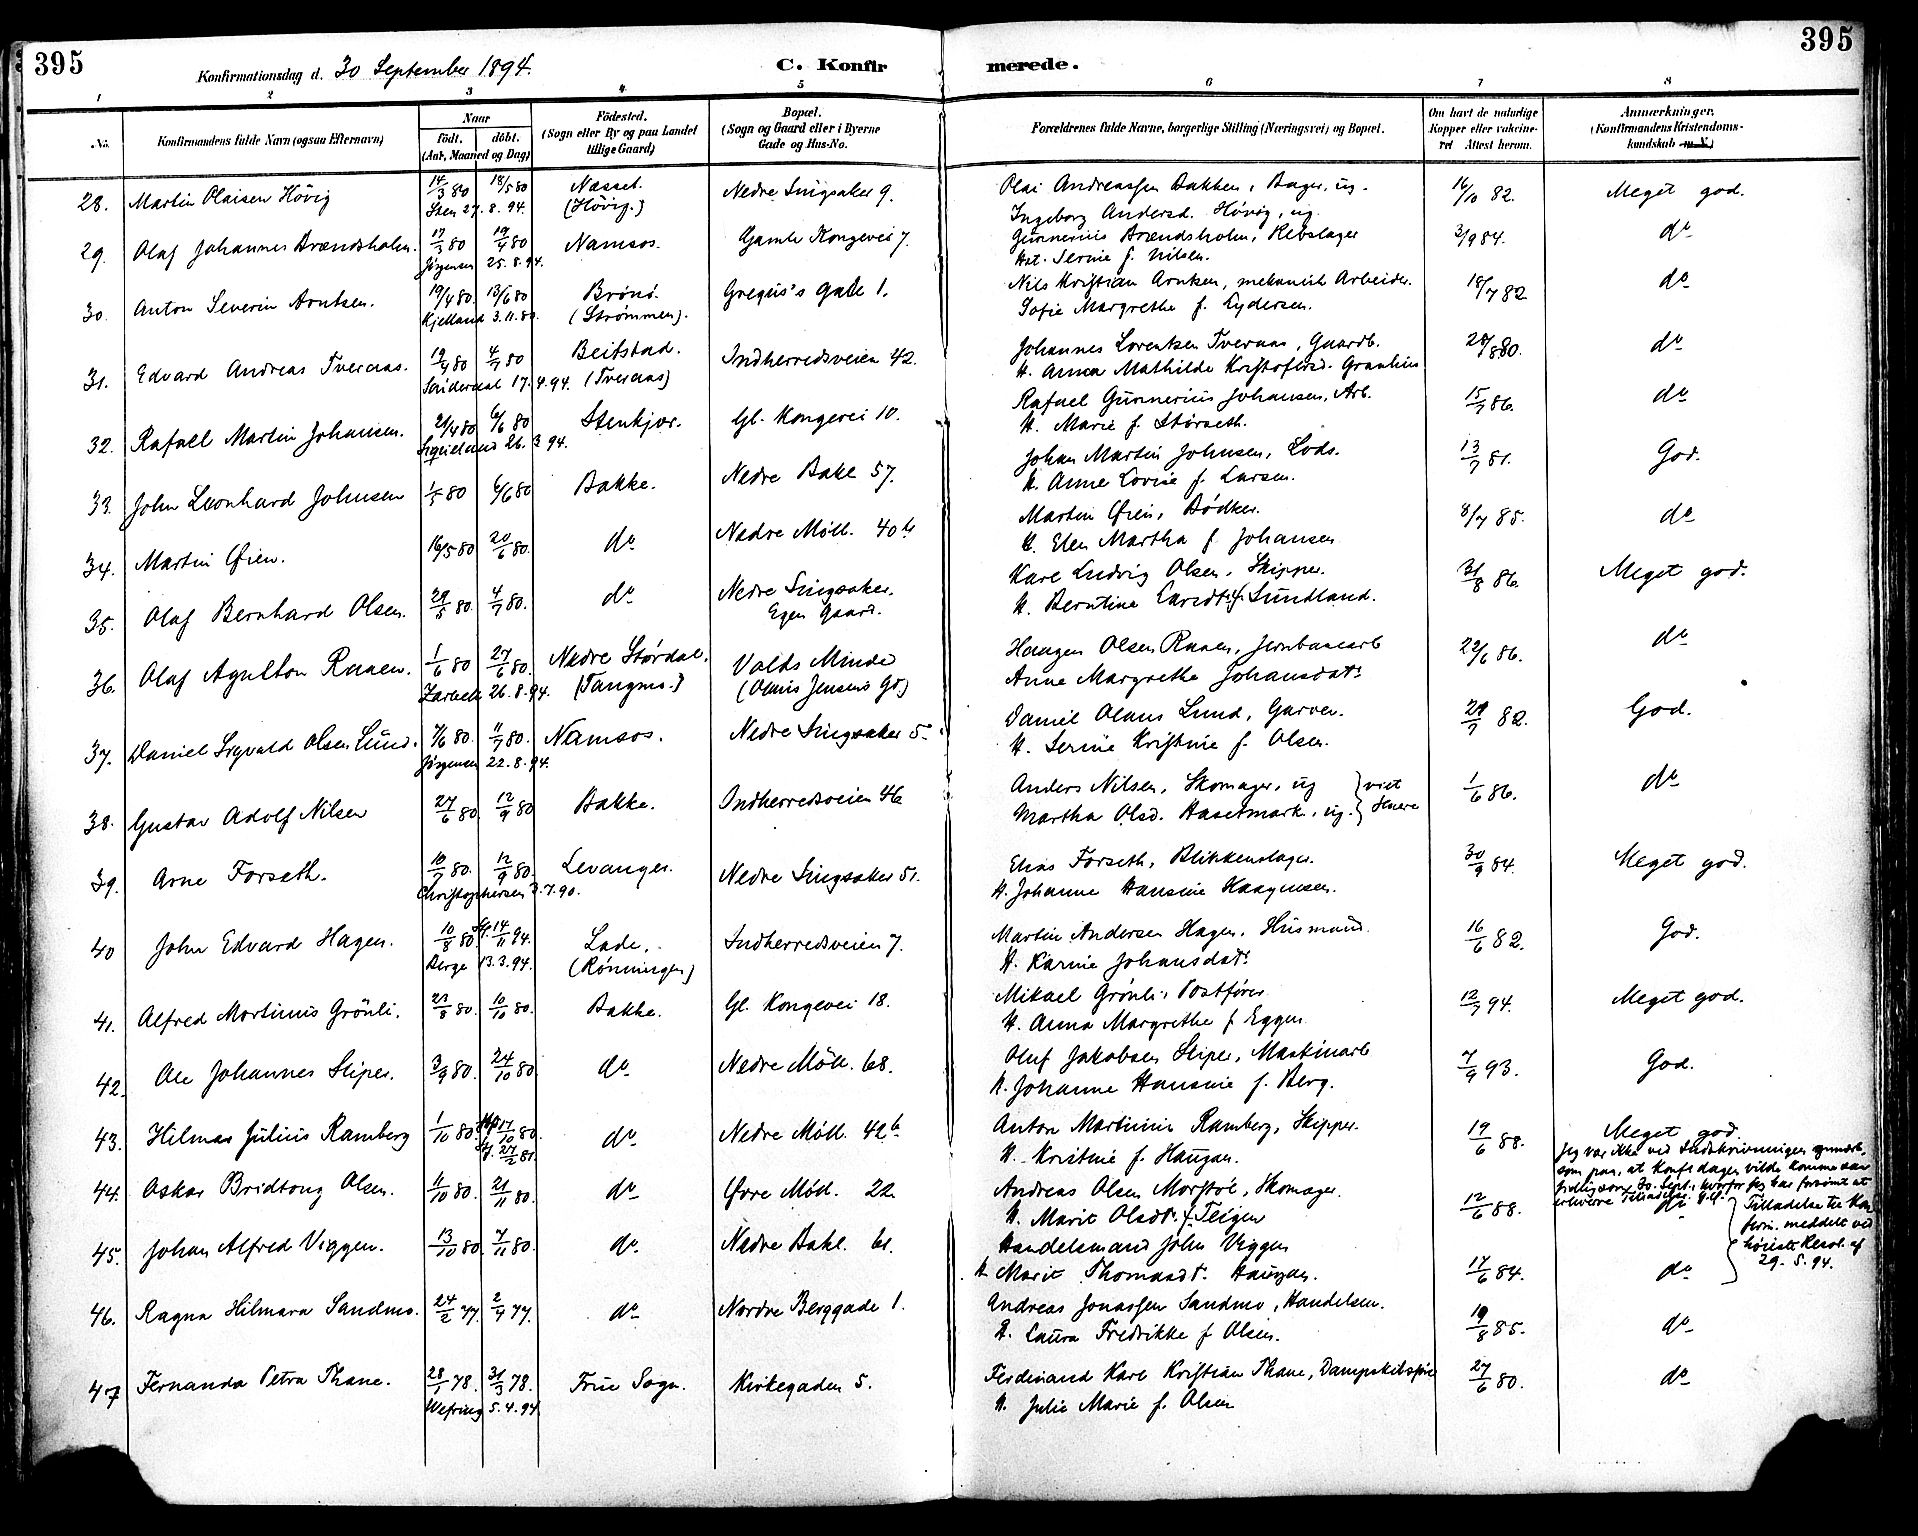 395
Konfirmationsdag d. 30 September 1894.
C. Konfirmerede.
395
1 2 3 4 5 6 7 8
No. Konfirmandens fulde Navn (ogsaa Efternavn) Naar født. døbt. (Aar, Maaned og Dag) Fødested. (Sogn eller By og paa Landet tillige Gaard) Bopæl. (Sogn og Gaard eller i Byerne Gade og Hus-No. Forældrenes fulde Navne, borgerlige Stilling (Næringsvei) og Bopæl. Om havt de naturlige Kopper eller vakcineret Attest herom. Anmærkninger. (Konfirmandens Kristendomskundskab m.V.)
28. Martin Olaisen Hövig 14/3 80 18/5 80 Næsset. Nedre Singsaker 9. Olai Andreassen Bakken, Bager, ug. 16/10 82. Meget god.
Sten 27.8.94. (Hövig.) Ingeborg Andersd. Hövig, ug.
29. Olaf Johannes Brændsholm. 17/3 80 19/4 80 Namsos. Gamle Kongevei 7. Gunnerius Brændsholm, Rebslager 3/9 84. do
Jörgensen 25.8.94. Hst. Serine f. Nilsen.
30. Anton Severin Arntsen. 19/4 80. 13/6 80 Brönö. Gregus's Gade 1. Nils Kristian Arntsen, mekanisk Arbeider. 18/7 82 do
Kjelland 3.11.80. (Strömmen). Sofie Margrethe f. Eydersen.
31. Edvard Andreas Tveraas. 19/4 80 4/7 80 Beitstad. Indherredsveien 42. Johannes Lorentsen Tveraas, Gaardb. 28/8 80. do
17.4.94. (Tveraas) H. Anna Mathilde Kristofersd.
32. Rafael Martin Johansen. 21/4 80 6/6 80 Stenkjær. Gl. Kongevei 10. Rafael Gunnerius Johansen, Arb. 15/7 86. do
26.3.94. H. Marie f. Störseth.
33. John Leonhard Johnsen 1/5 80 6/6 80 Bakke. Nedre Bakl 57. Johan Martin Johnsen, Lods. 13/7 81. God.
H. Anne Lovise f. Larsen.
34. Martin Øien. 16/5 80 20/6 80. do Nedre Möll. 40 b Martin Øien, Bödker. 8/7 85. do
H. Elen Martha f. Johansen
35. Olaf Bernhard Olsen. 29/5 80. 4/7 80. do Nedre Singsaker. Karl Ludvig Olsen, Skipper. 31/8 86. Meget god.
Egen Gaard. H. Berntine f. Sundland.
36. Olaf Agulton Raaen. 1/6 80 27/6 80. Nedre Stördal. Volds Minde Haagen Olsen Raaen, Jernbanearb 22/6 86. do
26.8.94. (Tangmo.) (Olaus Jensens Gd) Anne Margrethe Johansdatr
37. Daniel Sigvald Olsen Lund. 7/6 80. 11/7 80. Namsos. Nedre Singsaker 5. Daniel Olaus Lund, Garver. 29/7 82. God.
Jörgensen 22.8.94. H. Serine Kristine f. Olsen.
38. Gustav Adolf Nilsen 27/6 80. 12/9 80 Bakke. Indherredsveien 46 Anders Nilsen, Skomager, ug } viet 1/6 86. do
Martha Olsd. Hasetmark, ug. } senere
39. Arne Forseth. 10/7 80. 12/9 80. Levanger. Nedre Singsaker 51. Elias Forseth, Blikkenslager. 30/9 84. Meget god.
Christophersen 3.7.90. H. Johanne Hansine Haagensen.
40 John Edvard Hagen. 10/8 80. 14/11 94. Lade. Indherredsveien 7. Martin Andersen Hagen, Husmand. 16/6 82. God.
Berge 13.3.94. (Rönningen) H. Karine Johansdatr
41. Alfred Martinus Grönli. 23/8 80. 10/10 80. Bakke. Gl. Kongevei 18. Mikael Grönli, Postförer 12/7 94. Meget god.
H. Anna Margrethe f Eggen.
42. Ole Johannes Sliper. 3/9 80. 24/10 80 do Nedre Möll. 68. Oluf Jakobsen Sliper, Maskinarb 7/9 93. God.
H. Johanne Hansine f. Berg.
43. Hilmar Julius Ramberg 1/10 80 17/10 80. do Nedre Möll. 42 b Anton Martinius Ramberg, Skipper. 19/6 88. Meget god.
27/2 81. H. Kristine f. Haugan.
Jeg var ikke ved Indskrivningen opmærk-
som paa, at Konft.dagen vilde komme saa
tidlig som 30. Sept., hvorfor jeg har forsömt at
erhverve Tilladelse.
44. Oskar Bridtong Olsen. 11/10 80. 21/11 80. do Øvre Möll. 22 Andreas Olsen Morstöl, Skomager. 12/6 88.
H. Marit Olsdtr. f. Teigen
Tilladelse til Kon
firm. meddelt ved
höieste Resol. af
29.5.94.
45. Johan Alfred Viggen. 13/10 80. 7/11 80. do. Nedre Bakl. 61. Handelsmand John Viggen 17/6 84. do
H. Marit Thomasdr. Haugan.
46. Ragna Hilmara Sandmo. 24/2 77. 2/4 77. do Nordre Berggade 1. Andreas Jonassen Sandmo, Handelsm. 19/8 85. do
H. Laura Fredrikke f Olsen.
47 Fernanda Petra Thane. 28/1 78. 31/3 78. Frue Sogn. Kirkegaden 5. Ferdinand Karl Kristian Thane, Dampskibsförer 27/6 80. do
Wefring 5.4.94 H. Julie Marie f. Olsen